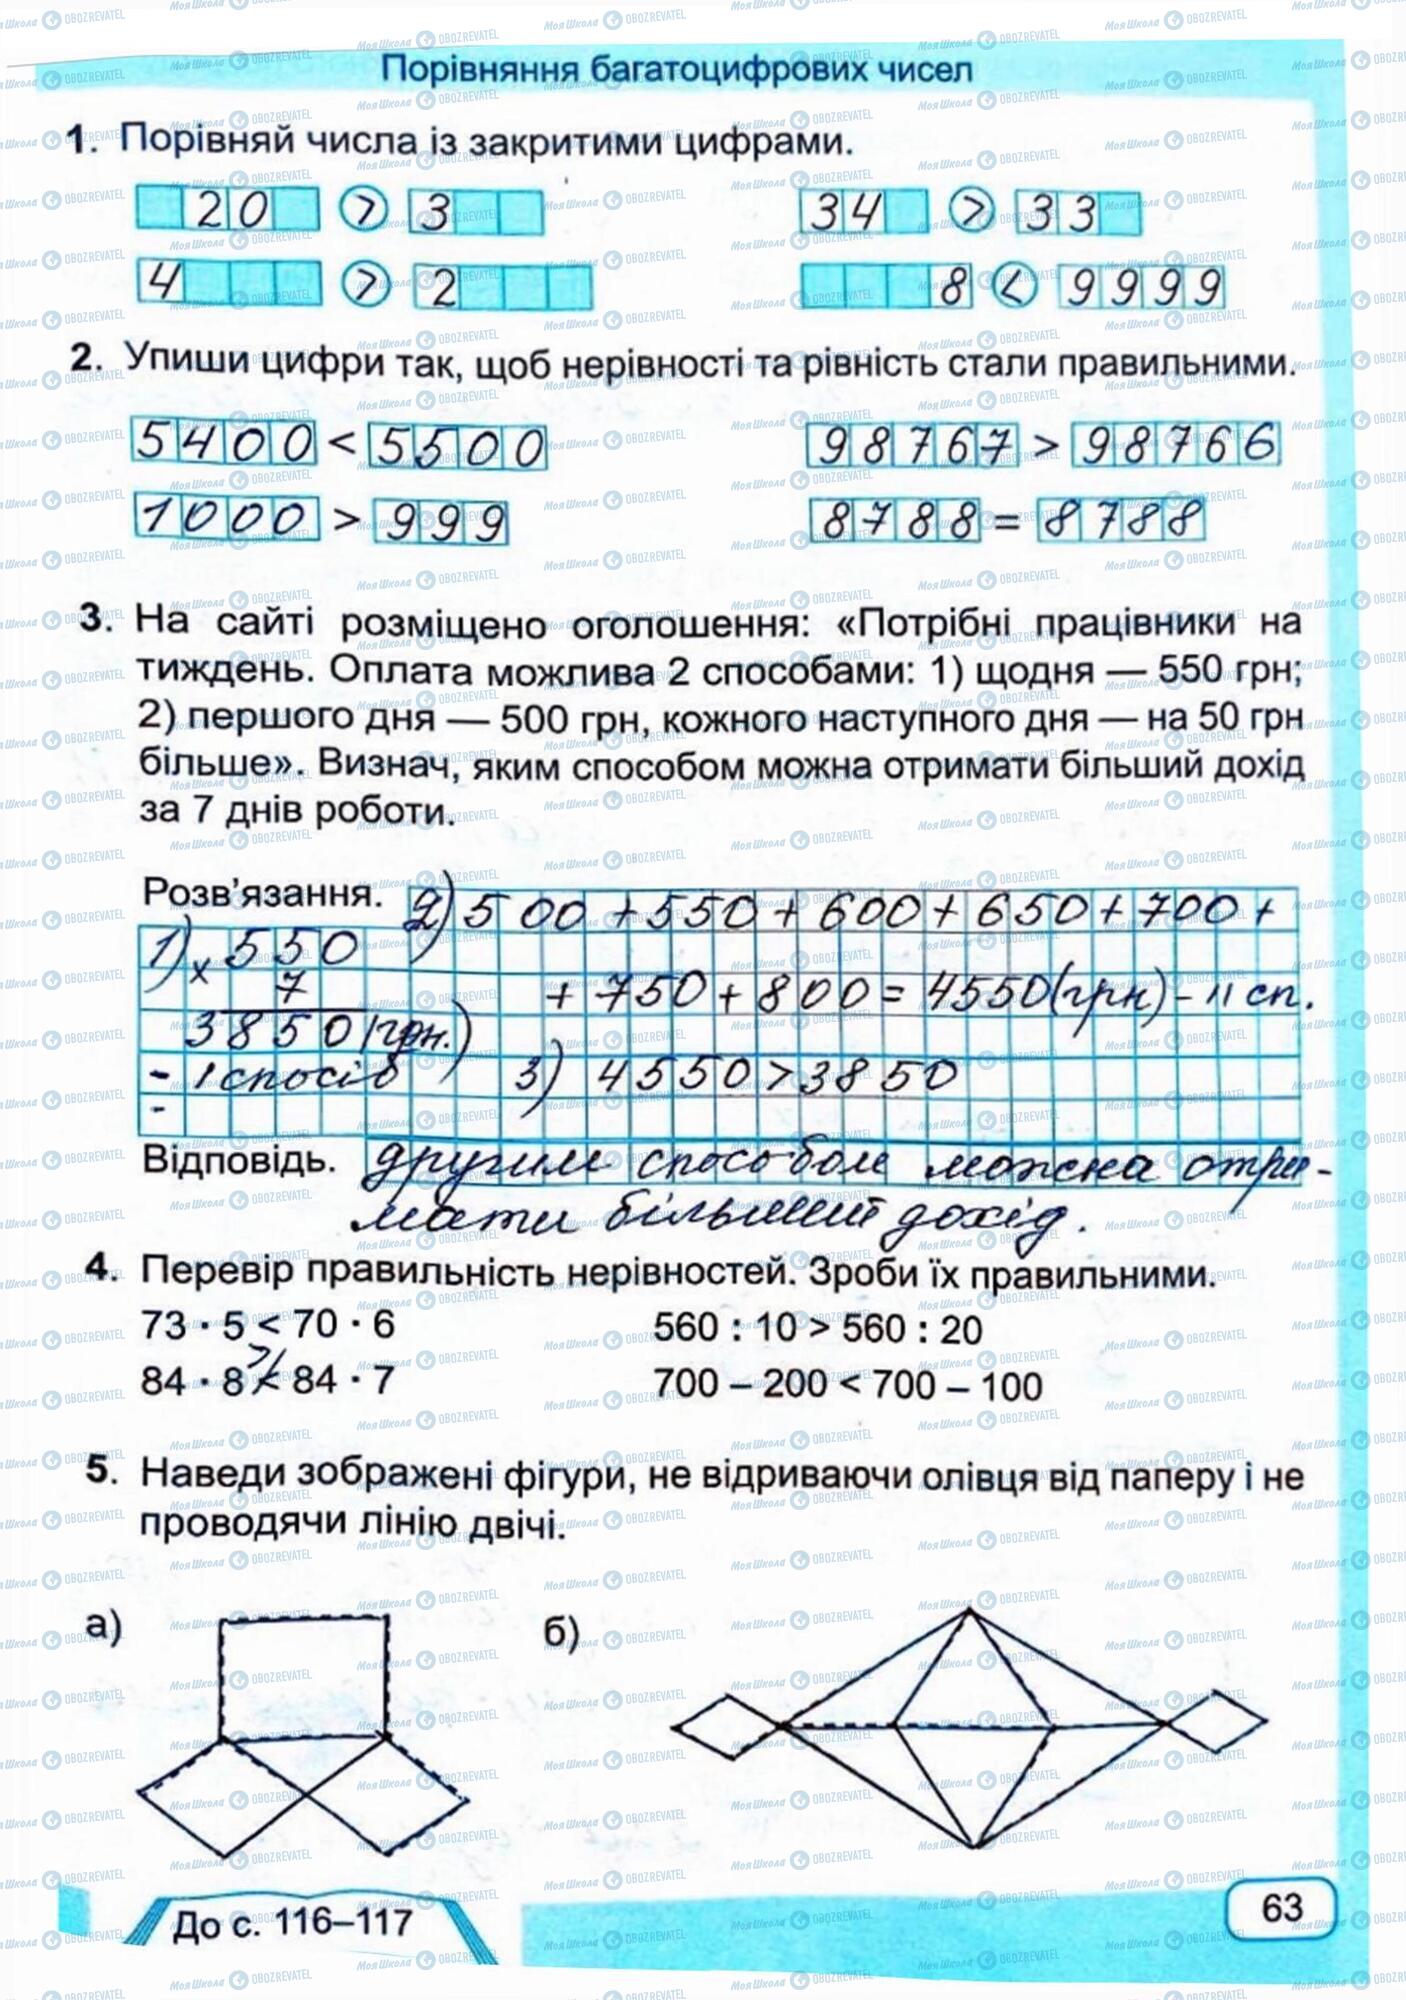 Порівняння багатоцифрових чисел
1. Порівняй числа із закритими цифрами.
20 > 3 34 > 33
4 > 2 8 < 9999
2. Упиши цифри так, щоб нерівності та рівність стали правильними.
5400 < 5500 98767 > 98766
1000 > 999 8788 = 8788
3. На сайті розміщено оголошення: «Потрібні працівники на
тиждень. Оплата можлива 2 способами: 1) щодня — 550 грн;
2) першого дня — 500 грн, кожного наступного дня — на 50 грн
більше». Визнач, яким способом можна отримати більший дохід
за 7 днів роботи.
Розв'язання. 2) 500 + 550 + 600 + 650 + 700 +
1) × 550
7 + 750 + 800 = 4550 (грн) - II сп.
3850 (грн.)
- I спосіб 3) 4550 > 3850
-
Відповідь. другим способом можна отри-
мати більший дохід.
4. Перевір правильність нерівностей. Зроби їх правильними.
73 · 5 < 70 · 6 560 : 10 > 560 : 20
>
84 · 8 < 84 · 7 700 – 200 < 700 – 100
5. Наведи зображені фігури, не відриваючи олівця від паперу і не
проводячи лінію двічі.
а) б)
До с. 116–117 63
МояШкола OBOZREVATEL